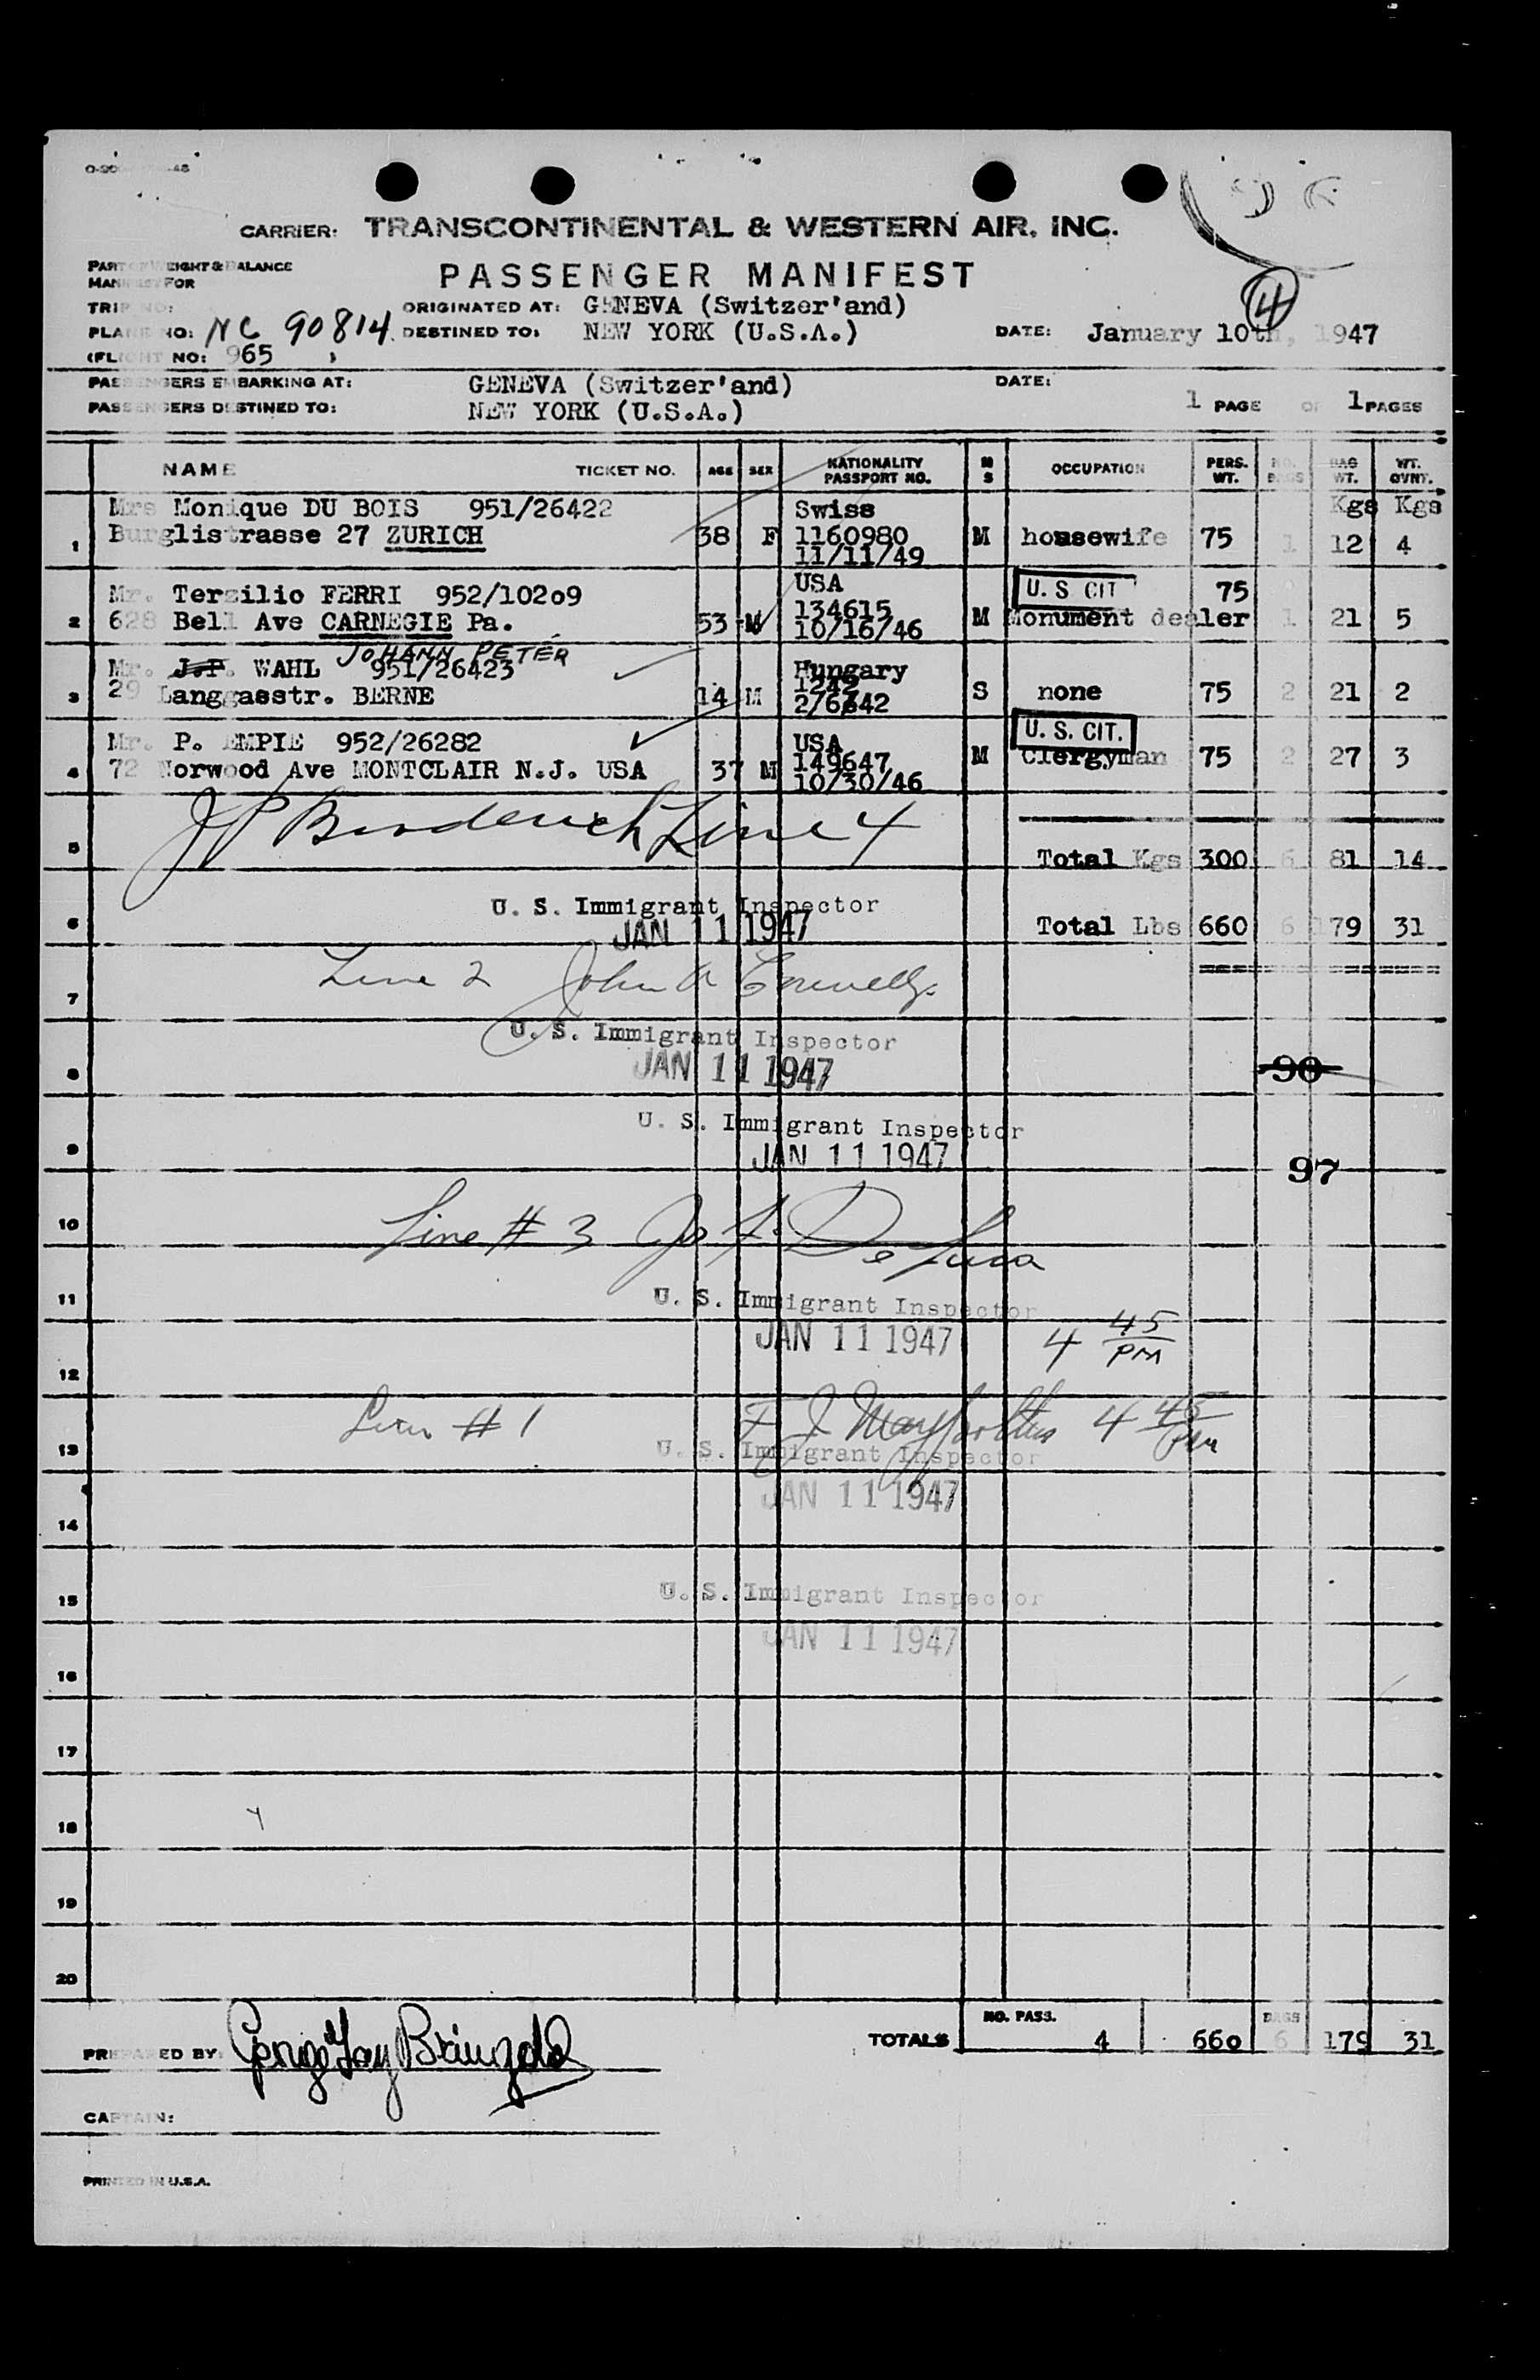 CARRIER: TRANSCONTINENTAL & WESTERN AIR, INC.
PART OF WEIGHT & BALANCE
MANIFEST FOR
PASSENGER MANIFEST
TRIP NO: ORIGINATED AT: GENEVA (Switzer'and)
PLANE NO: NC 90814 DESTINED TO: NEW YORK (U.S.A.) DATE: January 10th, 1947
4
(FLIGHT NO: 965 )
PASSENGERS EMBARKING AT: GENEVA (Switzer'and) DATE:
PASSENGERS DESTINED TO: NEW YORK (U.S.A.) 1 PAGE OF 1 PAGES
NAME TICKET NO. AGE SEX NATIONALITY PASSPORT NO. M S OCCUPATION PERS. WT. NO. BAGS BAG WT. WT. OVNT.
Kgs Kgs
Mrs Monique DU BOIS 951/26422 Swiss
1 Burglistrasse 27 ZURICH 38 F 1160980 M housewife 75 1 12 4
11/11/49
USA U. S CIT 75
Mr. Tersilio FERRI 952/10209 134615
2 628 Bell Ave CARNEGIE Pa. 53 M 10/16/46 M Monument dealer 1 21 5
JOHANN PETER
Mr. J.P. WAHL 951/26423 Hungary
1242
3 29 Langgasstr. BERNE 14 M 2/6642 S none 75 2 21 2
U. S. CIT.
Mr. P. EMPIE 952/26282 USA
149647
4 72 Norwood Ave MONTCLAIR N.J. USA 37 M 10/30/46 M Clergyman 75 2 27 3
J P Broderick Line 4
5 Total Kgs 300 6 81 14
U. S. Immigrant Inspector
6 JAN 11 1947 Total Lbs 660 6 179 31
Line 2 John A
7
U. S. Immigrant Inspector
8 JAN 11 1947 90
U. S. Immigrant Inspector
9 JAN 11 1947
97
10 Line # 3 Jos F. De Luca
11 U. S. Immigrant Inspector
JAN 11 1947 4 45 PM
12
Line # 1 F J 4 45 PM
13 U. S. Immigrant Inspector
JAN 11 1947
14
15 U. S. Immigrant Inspector
JAN 11 1947
16
17
18
19
20
NO. PASS. BAGS
TOTALS 4 660 6 179 31
PREPARED BY:
CAPTAIN:
PRINTED IN U.S.A.